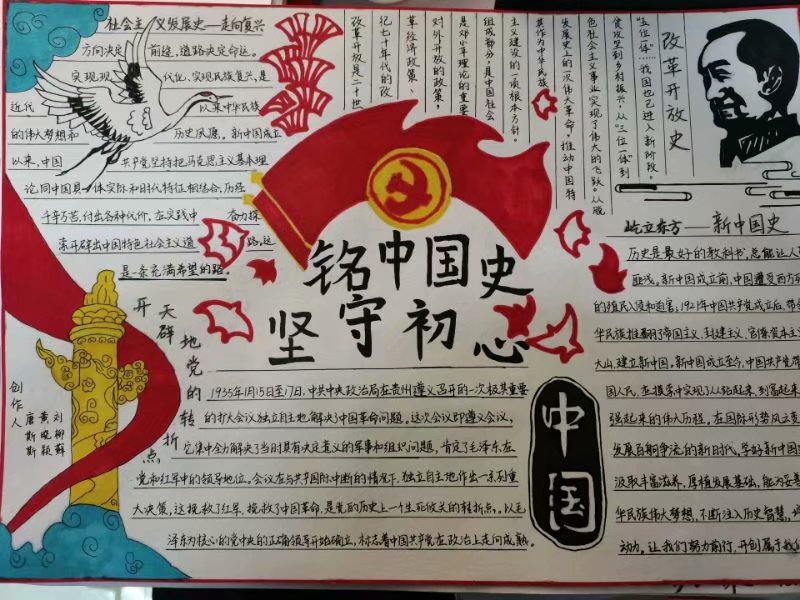 社会主义发展史——走向复兴
方向决定前途，道路决定命运。
实现现代化，实现民族复兴，是
近代以来中华民族
的伟大梦想和历史夙愿。新中国成立
以来，中国共产党坚持把马克思主义基本理
论同中国具体实际和时代特征相结合，历经
千辛万苦，付出各种代价，在实践中奋力探
索开辟出中国特色社会主义道路。这
是一条充满希望的路。
改革开放史
“五位一体”……我国也已进入新阶段。
贫攻坚到乡村振兴，从“三位一体”到
色社会主义事业实现了伟大的飞跃。从脱
发展史上的一次伟大革命，推动中国特
其作为中华民族
主义建设的一项根本方针。
组成部分，是中国社会
是邓小平理论的重要
对外开放的政策，
革经济政策、
犯七十年代的改
改革开放是二十世
铭中国史
坚守初心
屹立东方——新中国史
历史是最好的教科书，总能让人
新中国成立前，中国遭受西方
的殖民入侵和迫害；1921年中国共产党成立后，带
华民族推翻了帝国主义、封建主义、官僚资本主
大山，建立新中国。新中国成立至今，中国共产党带
国人民，在摸索中实现了从站起来，到富起来
强起来的伟大历程。在国际形势风云变
发展百舸争流的新时代。学好新中国
汲取丰富滋养，厚植发展基础，能为妥善
华民族伟大梦想，不断注入历史智慧，
动力。让我们努力前行，开创属于我们
开天辟地党的转折点
1935年1月15日至17日，中共中央政治局在贵州遵义召开的一次极其重要
的扩大会议独立自主地解决了中国革命问题。这次会议即遵义会议，
它集中全力解决了当时具有决定意义的军事和组织问题，肯定了毛泽东在
党和红军中的领导地位。会议在与共产国际中断的情况下，独立自主地作出一系列重
大决策，这挽救了红军，挽救了中国革命，是党的历史上一个生死攸关的转折点。以毛
泽东为核心的党中央的正确领导开始确立，标志着中国共产党在政治上走向成熟。
中国
创作人
刘柳蘇
黄晓颖
唐斯斯